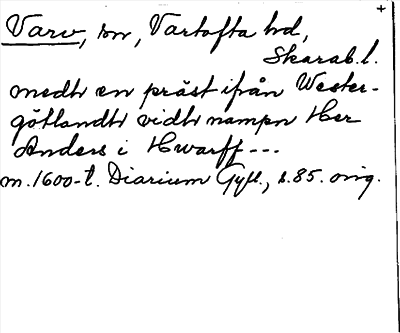 +
Varv, sn, Vartofta hd,
Skarab.l.
medh en präst ifrån Wester-
götlandh vidh nampn Her
Anders i Hwarff---
m.1600-t. Diarium Gyll., s.85. orig.